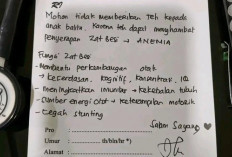 R/
Mohon tidak memberikan teh kepada
anak balita, karena teh dapat menghambat
penyerapan Zat Besi → ANEMIA
Fungsi Zat Besi
- Membantu perkembangan otak
→ Kecerdasan, Kognitif, Konsentrasi, IQ
- meningkatkan imunitas → kekebalan tubuh
- Sumber energi otot → Keterampilan motorik
- Cegah stunting
Salam Sayang
Pro :
Umur : th/bln/hr *)
Alamat :